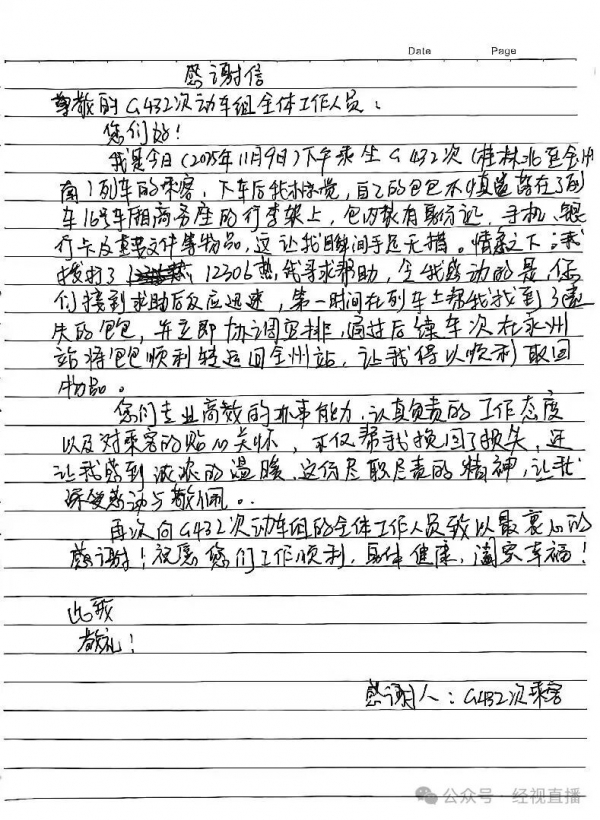 Date Page
感谢信
尊敬的G432次动车组全体工作人员：
您们好！
我是今日(2025年11月9日)下午乘坐G432次(桂林北至全州
南)列车的乘客，下车后我才惊觉，自己的包包不慎遗落在了列
车16号车厢商务座的行李架上，包内款有身份证、手机、银
行卡及重要文件等物品，这让我瞬间手足无措。情急之下，我
拨打了 12306热线寻求帮助，令我感动的是你
们接到求助后反应迅速，第一时间在列车上帮我找到了遗
失的包包，并立即协调安排，通过后续车次在永州
站将包包顺利转运回全州站，让我得以顺利取回
物品。
您们专业高效的办事能力、认真负责的工作态度
以及对乘客的贴心关怀，不仅帮我挽回了损失，还
让我感到浓浓的温暖，这份尽职尽责的精神，让我
深受感动与敬佩。
再次向G432次动车组的全体工作人员致以最衷心的
感谢！祝愿您们工作顺利，身体健康，阖家幸福！
此致
敬礼！
感谢人：G432次乘客
公众号·经视直播